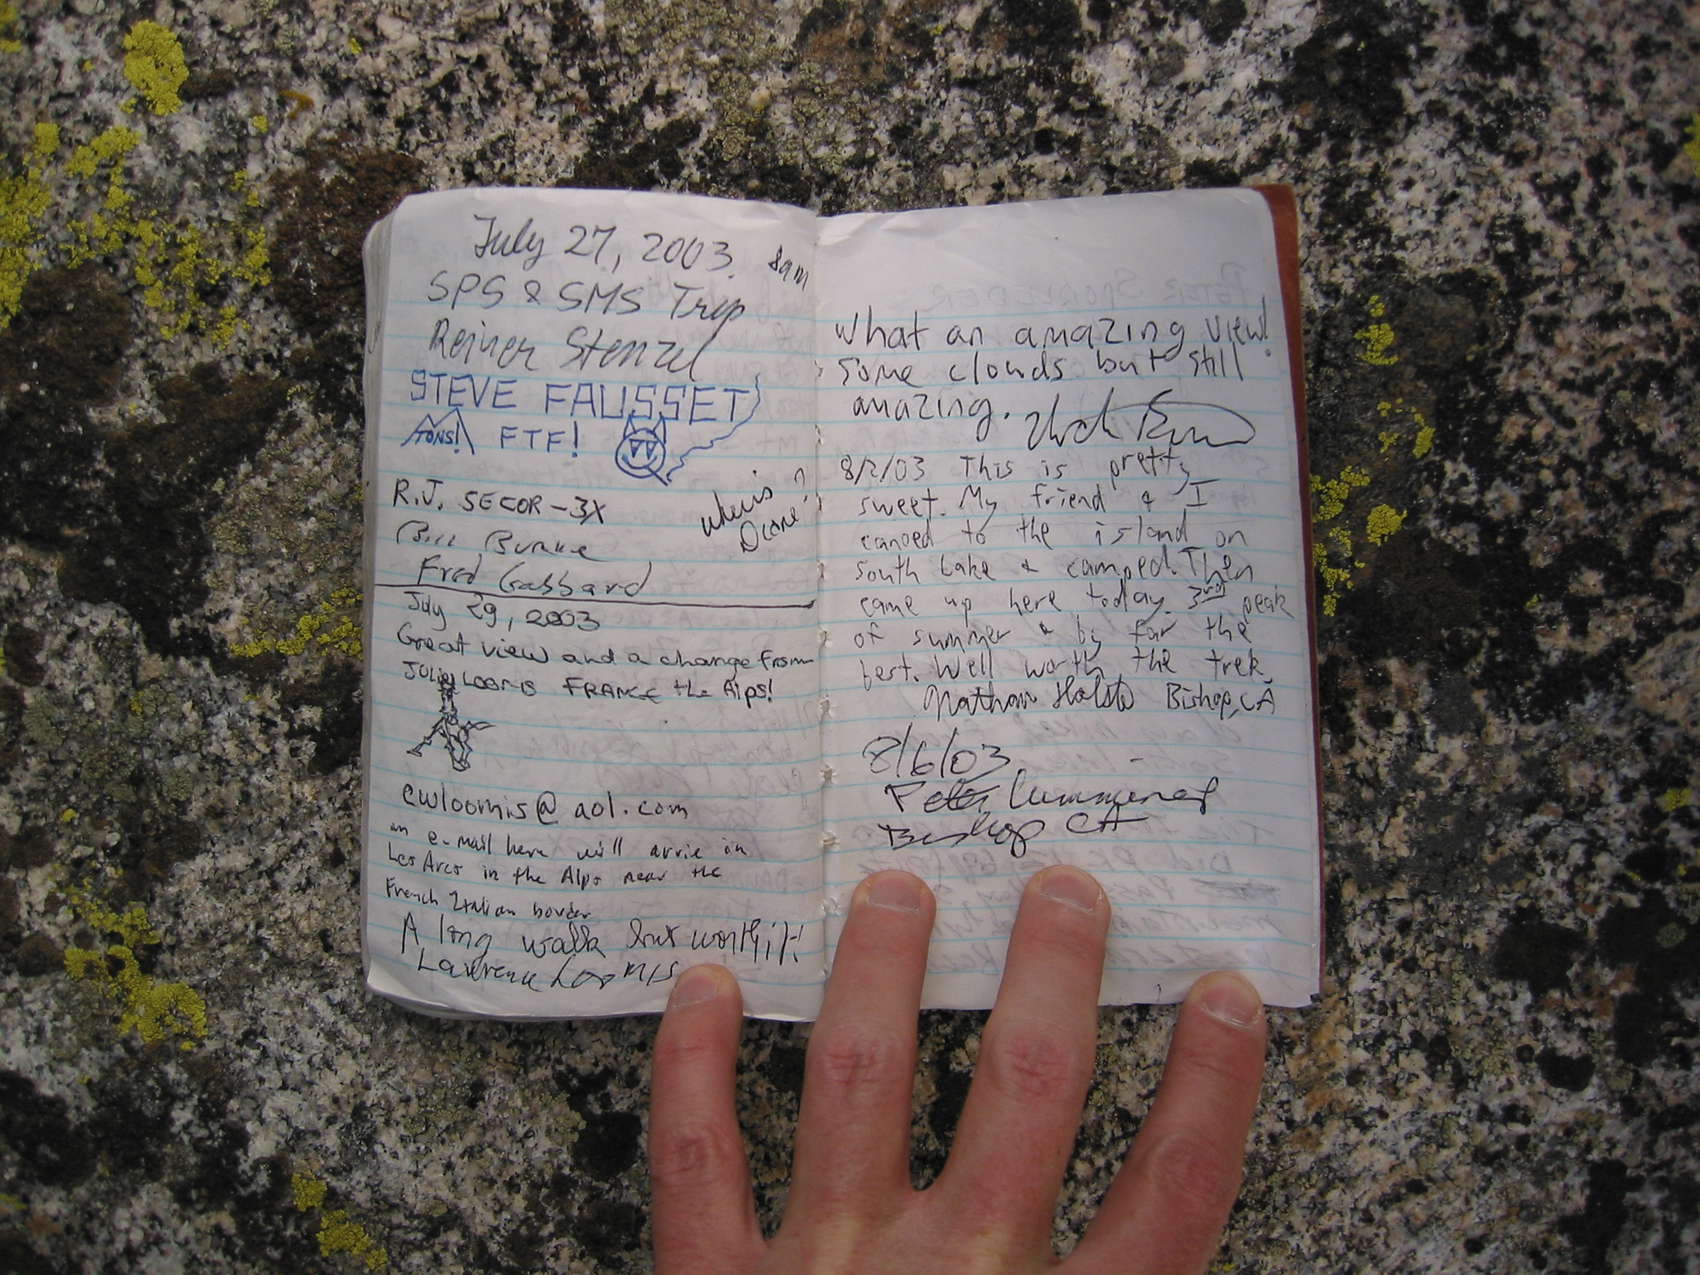 July 27, 2003. 8am
SPS & SMS Trip
Reiner Stenzel
STEVE FAUSSET
TONS! FTF!
R.J. SECOR -3X
where is
Diane?
Bill Burke
Fred Gabbard
July 29, 2003
Great view and a change from
JULIE LOOMIS FRANCE the Alps!
cwloomis@aol.com
an e-mail here will arrive in
Les Arcs in the Alps near the
French Italian border
A long walk but worth it!
Lawrence Loomis
What an amazing view!
some clouds but still
amazing.
8/2/03 This is pretty
sweet. My friend & I
canoed to the island on
South Lake & camped. Then
came up here today. 3rd peak
of summer & by far the
best. Well worth the trek
Nathan Holste Bishop, CA
8/6/03
Peter Cummings
Bishop CA